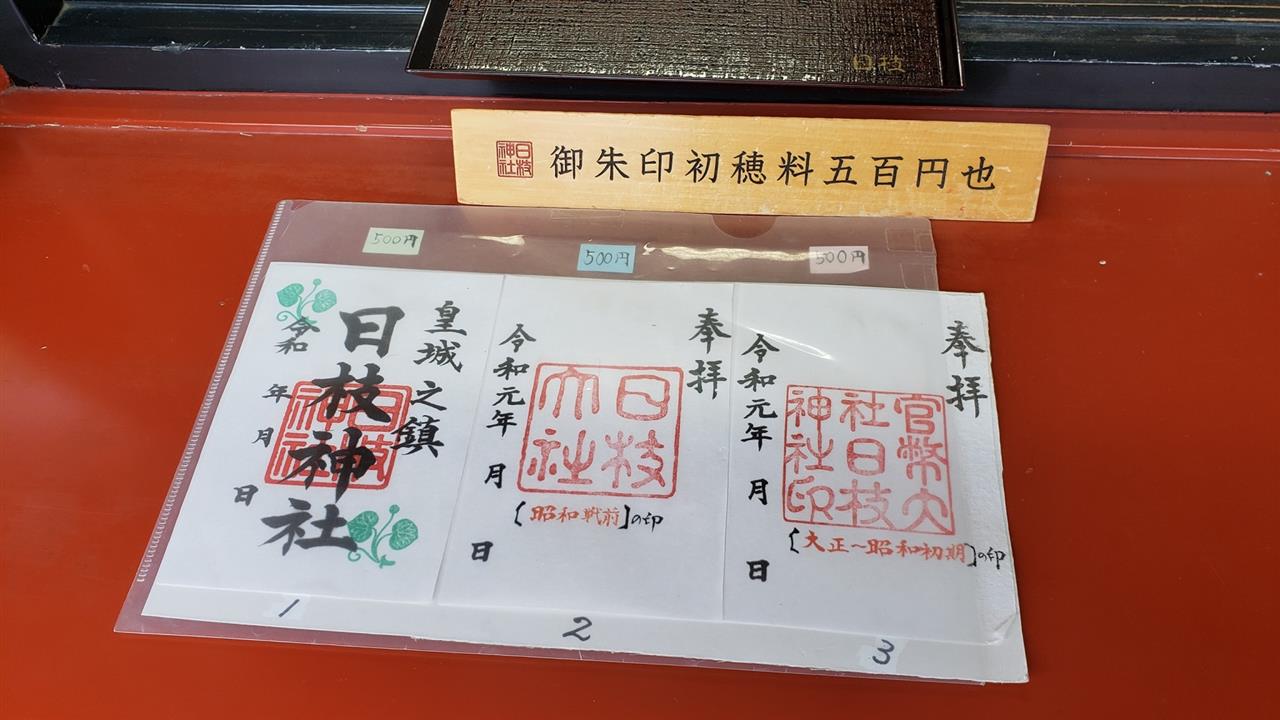 日枝
日枝神社
御朱印初穂料五百円也
500円
500円
500円
皇城之鎮
日枝神社
日枝神社
令和 年 月 日
1
奉拝
日枝大社
令和元年 月 日
【昭和戦前】の印
2
奉拝
官幣大社日枝神社印
令和元年 月 日
【大正～昭和初期】の印
3